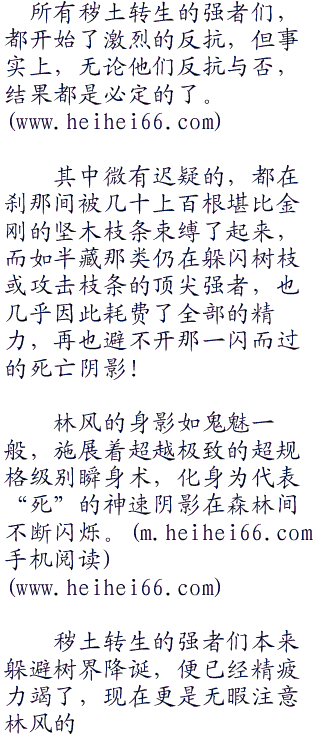 所有秽土转生的强者们，
都开始了激烈的反抗，但事
实上，无论他们反抗与否，
结果都是必定的了。
(www.heihei66.com)
其中微有迟疑的，都在
刹那间被几十上百根堪比金
刚的坚木枝条束缚了起来，
而如半藏那类仍在躲闪树枝
或攻击枝条的顶尖强者，也
几乎因此耗费了全部的精
力，再也避不开那一闪而过
的死亡阴影！
林风的身影如鬼魅一
般，施展着超越极致的超规
格级别瞬身术，化身为代表
“死”的神速阴影在森林间
不断闪烁。(m.heihei66.com
手机阅读)
(www.heihei66.com)
秽土转生的强者们本来
躲避树界降诞，便已经精疲
力竭了，现在更是无暇注意
林风的